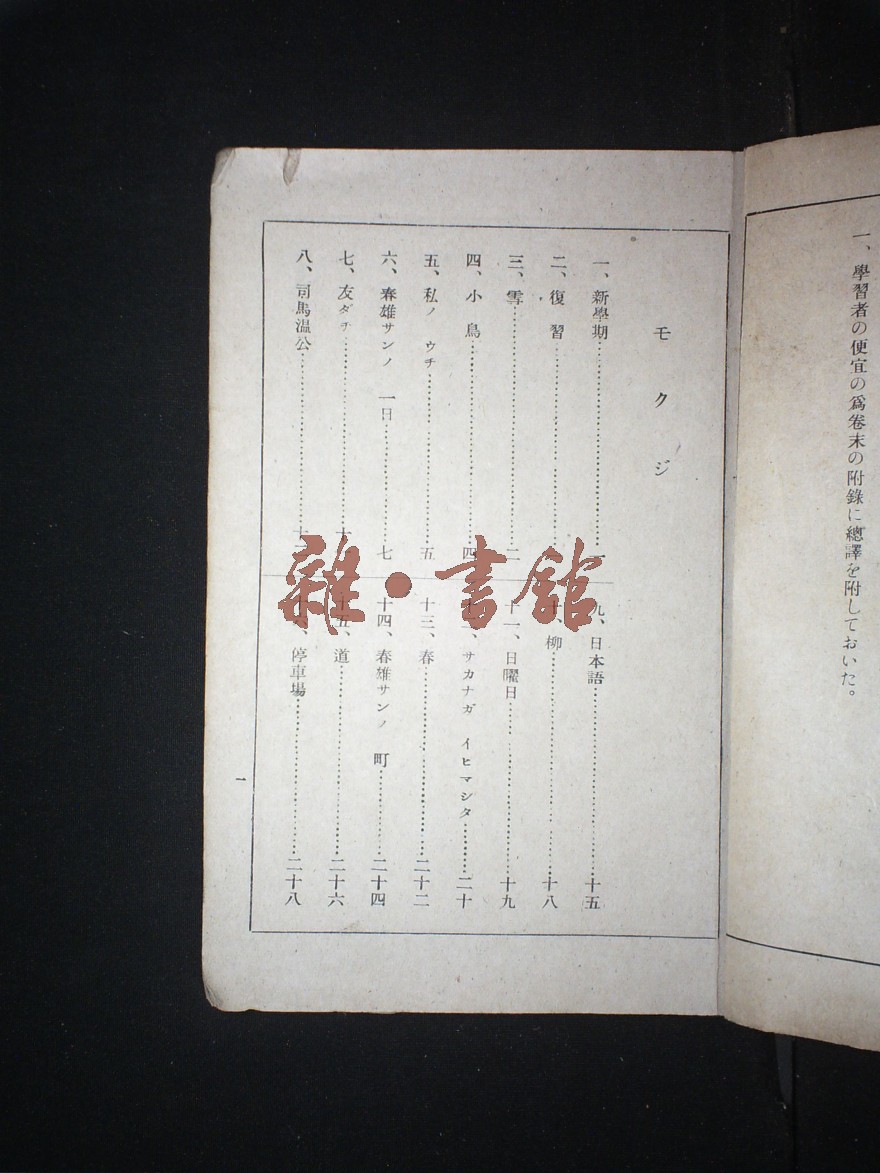 一、學習者の便宜の爲卷末の附錄に總譯を附しておいた。
モクジ
一、新學期……一
二、復習……
三、雪……二
四、小鳥……四
五、私ノ ウチ……五
六、春雄サンノ 一日……七
七、友ダチ……十
八、司馬温公……
九、日本語……十五
十、柳……十八
十一、日曜日……十九
十二、サカナガ イヒマシタ……二十
十三、春……二十二
十四、春雄サンノ 町……二十四
十五、道……二十六
十六、停車場……二十八
一
雜·書館